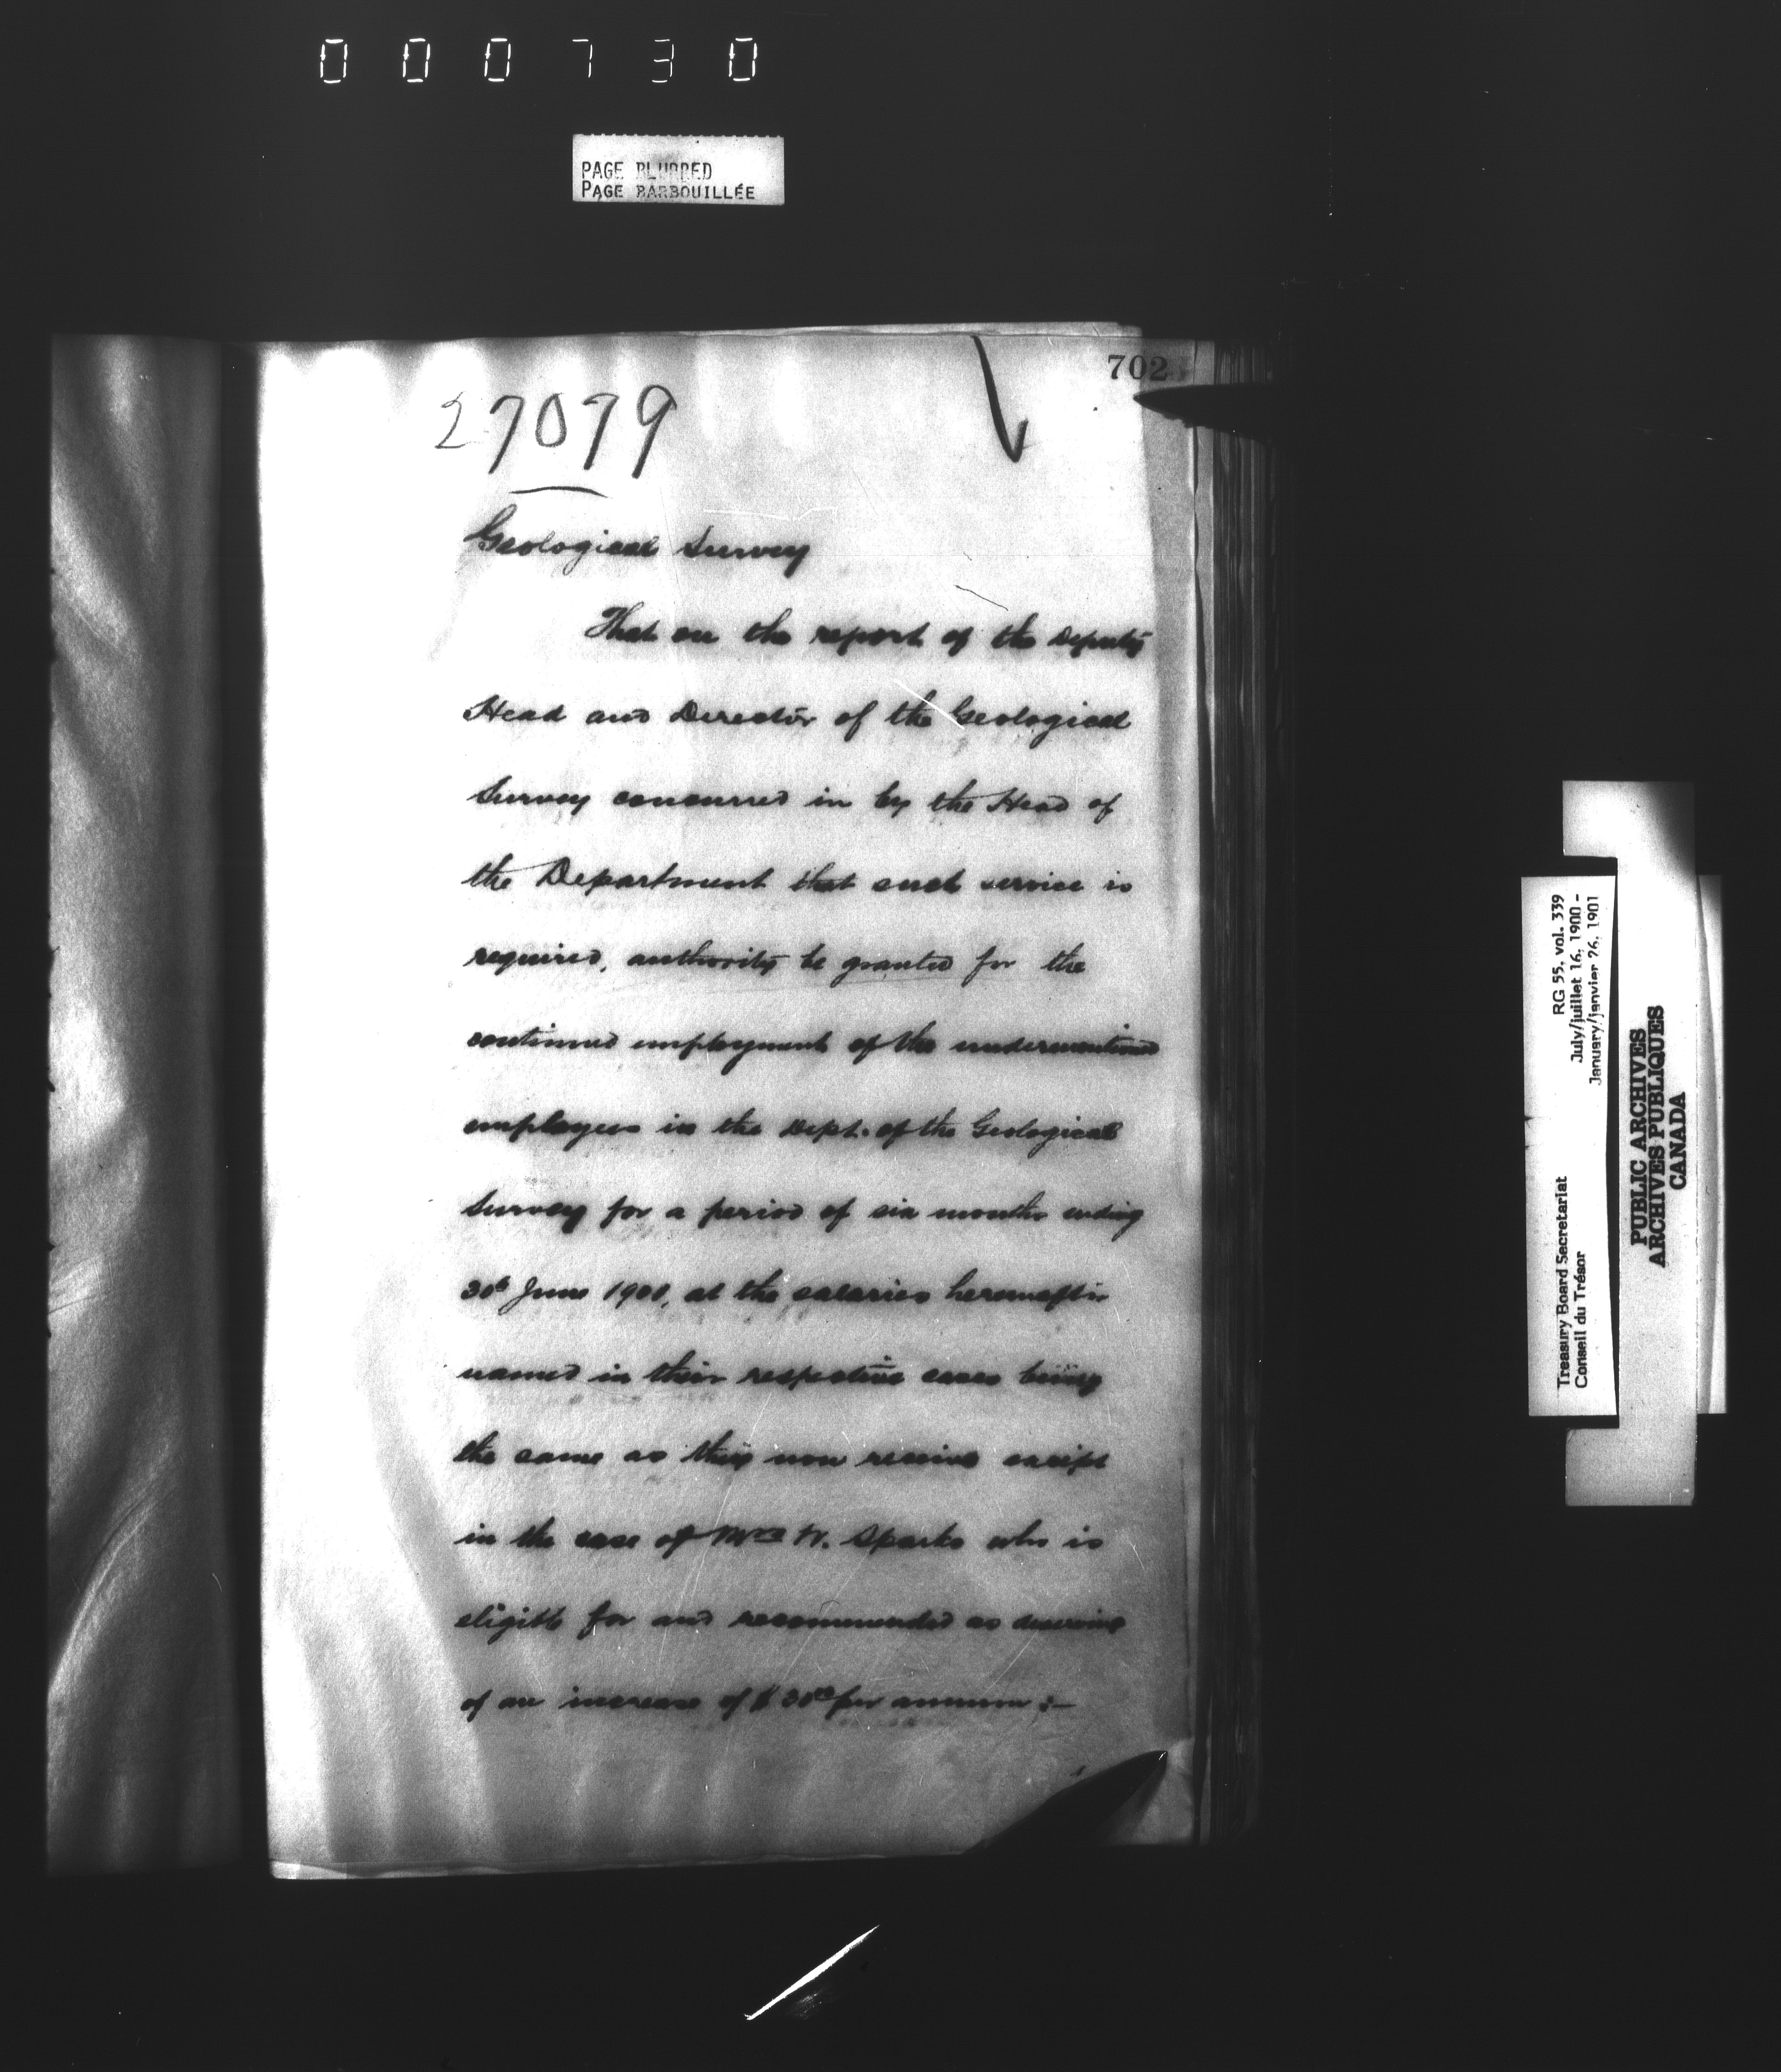 000730
PAGE BLURRED
PAGE BARBOUILLÉE
702
27079
Geological Survey
That on the report of the Deputy
Head and Director of the Geological
Survey concurred in by the Head of
the Department that such service is
required, authority be granted for the
continued employment of the undermentioned
employees in the Dept. of the Geological
Survey for a period of six months ending
30th June 1901, at the salaries hereinafter
named in their respective cases being
the same as they now receive except
in the case of Mrs W. Sparks who is
eligible for and recommended as deserving
of an increase of $30.00 per annum :-
RG 55, vol. 339
July/juillet 16, 1900 -
January/janvier 26, 1901
Treasury Board Secretariat
Conseil du Trésor
PUBLIC ARCHIVES
ARCHIVES PUBLIQUES
CANADA